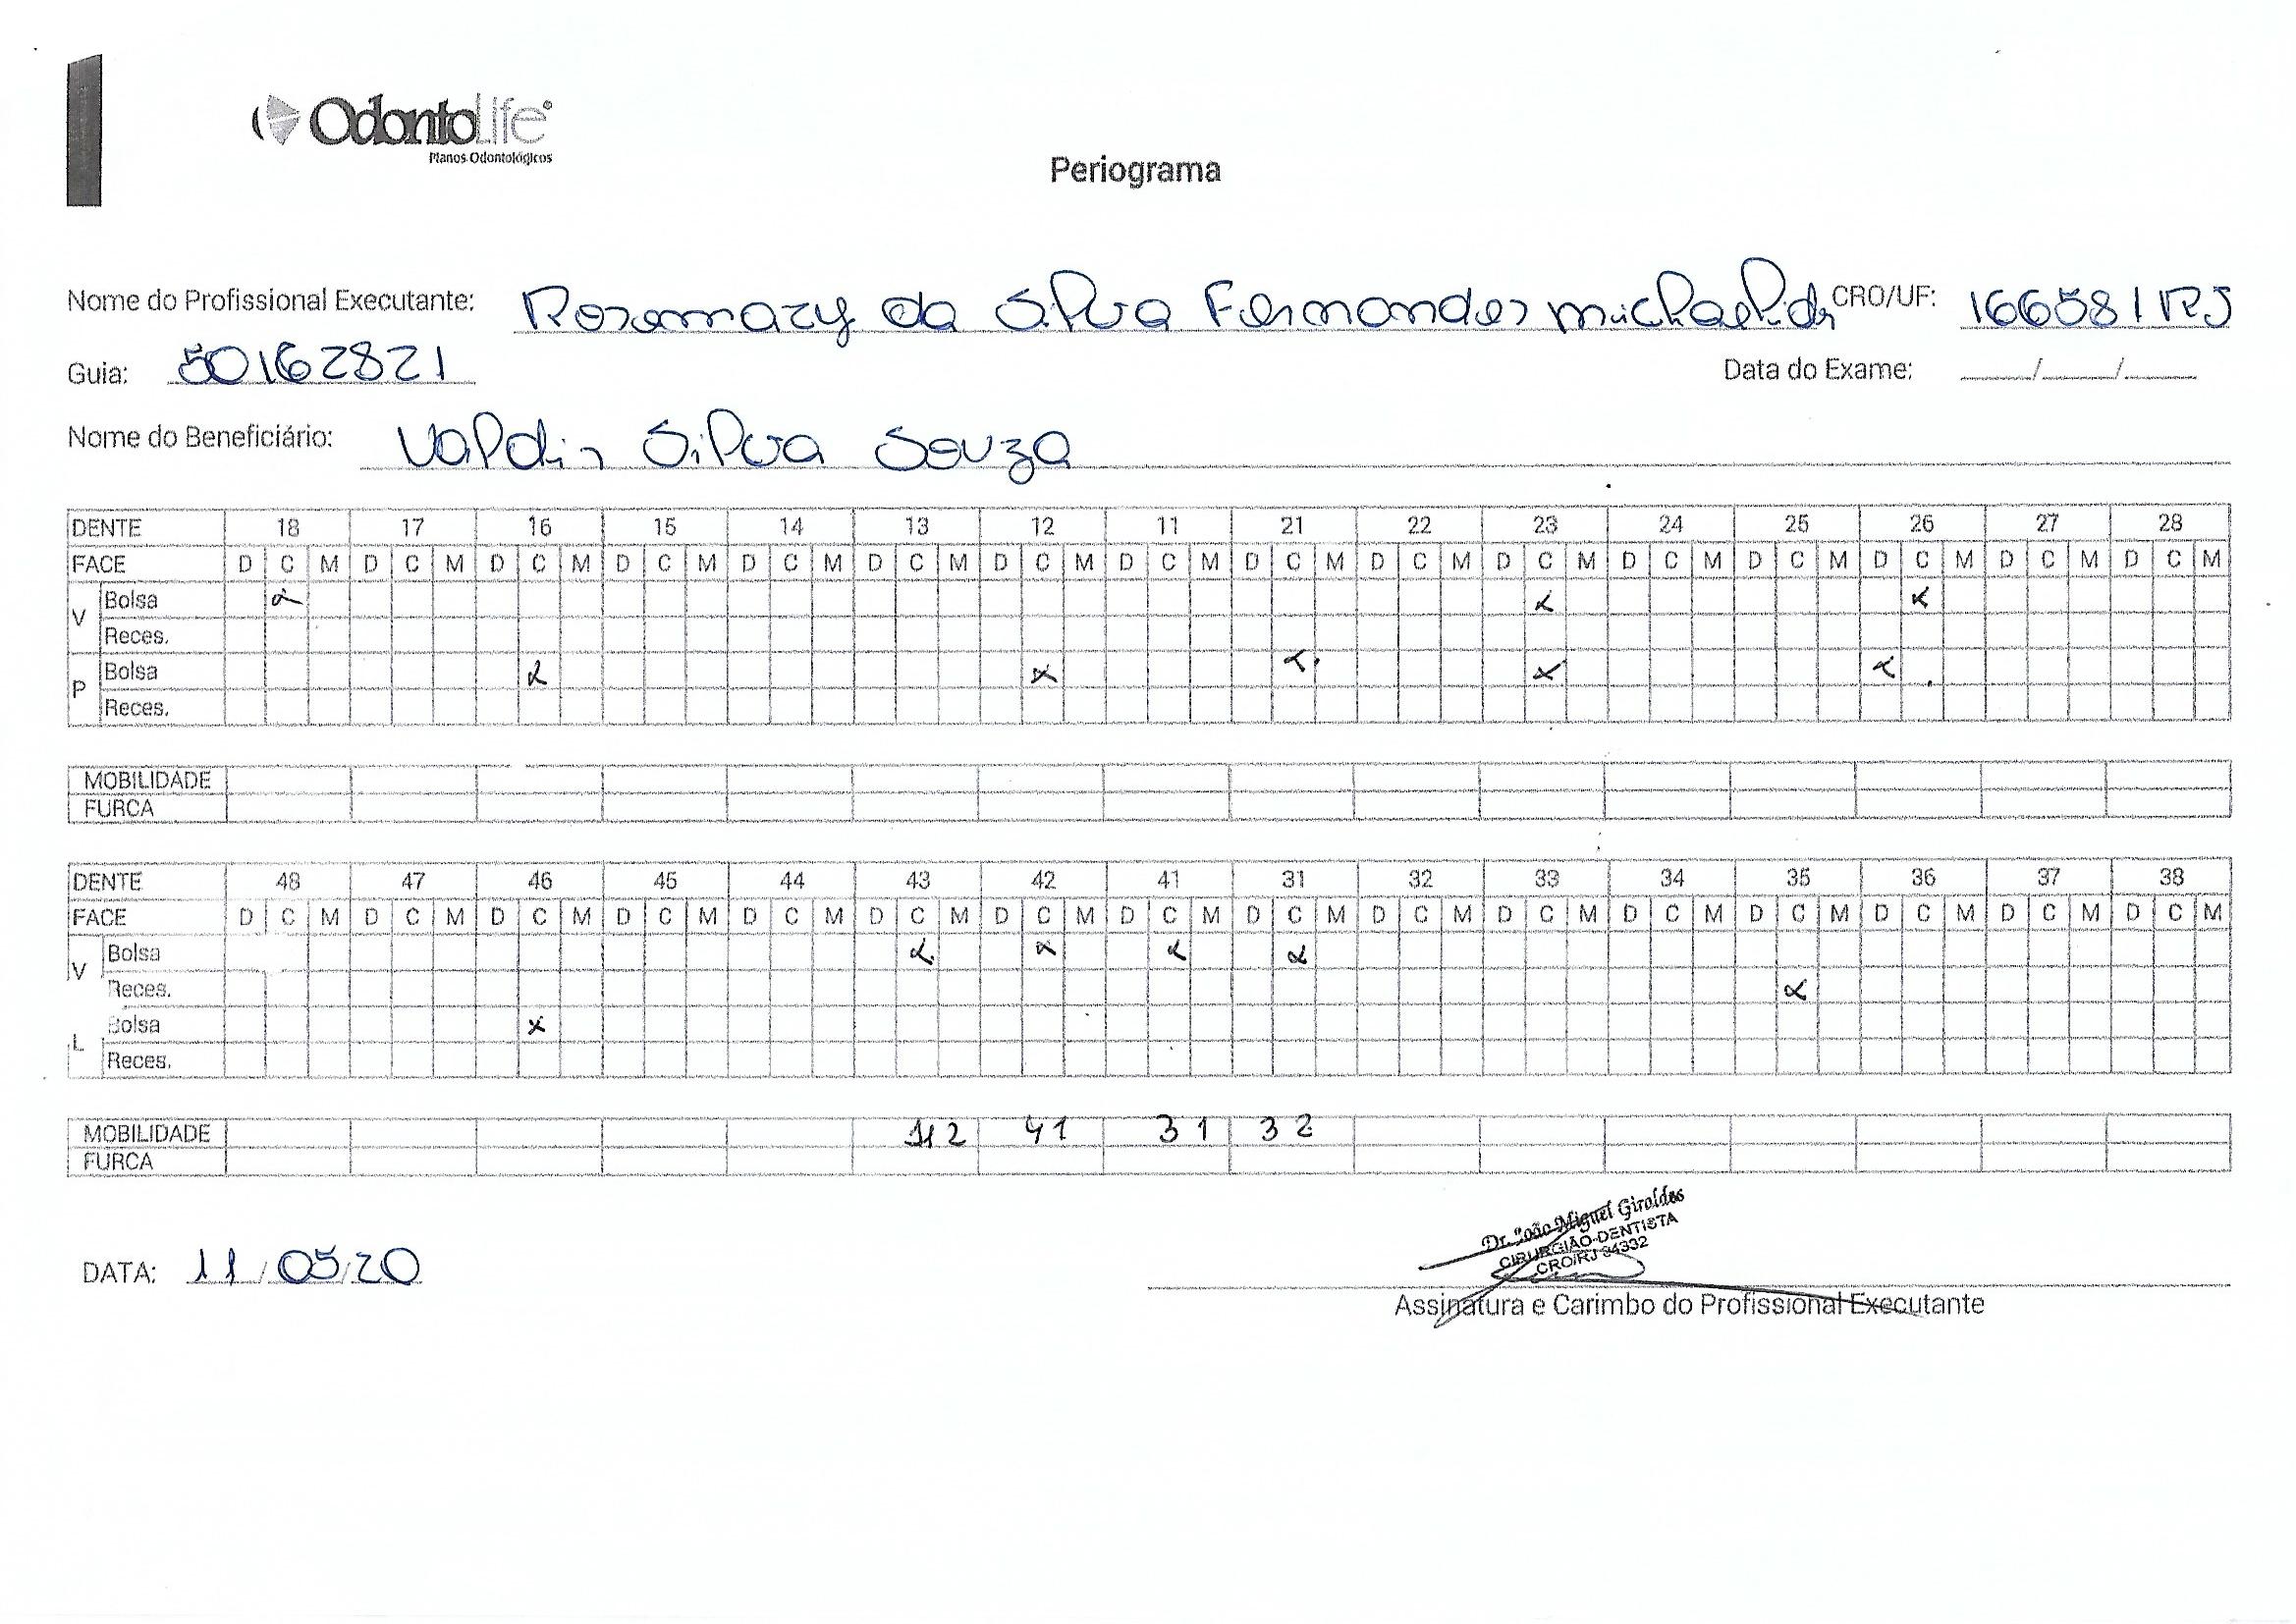 OdontoLife®
Planos Odontológicos
Periograma
Nome do Profissional Executante: Rosemary da Silva Fernandes CRO/UF: 16658 / RJ
Guia: 50162821 Data do Exame: ___/___/___
Nome do Beneficiário: Silva Souza
DENTE 18 17 16 15 14 13 12 11 21 22 23 24 25 26 27 28
FACE D C M D C M D C M D C M D C M D C M D C M D C M D C M D C M D C M D C M D C M D C M D C M D C M
V Bolsa x x x
Reces.
P Bolsa x x x x x
Reces.
MOBILIDADE
FURCA
DENTE 48 47 46 45 44 43 42 41 31 32 33 34 35 36 37 38
FACE D C M D C M D C M D C M D C M D C M D C M D C M D C M D C M D C M D C M D C M D C M D C M D C M
V Bolsa x x x x
Reces. x
L Bolsa x
Reces.
MOBILIDADE 42 41 31 32
FURCA
Dr. João Miguel Giraldes
CIRURGIÃO-DENTISTA
CRO/RJ 34332
DATA: 11/05/20
Assinatura e Carimbo do Profissional Executante